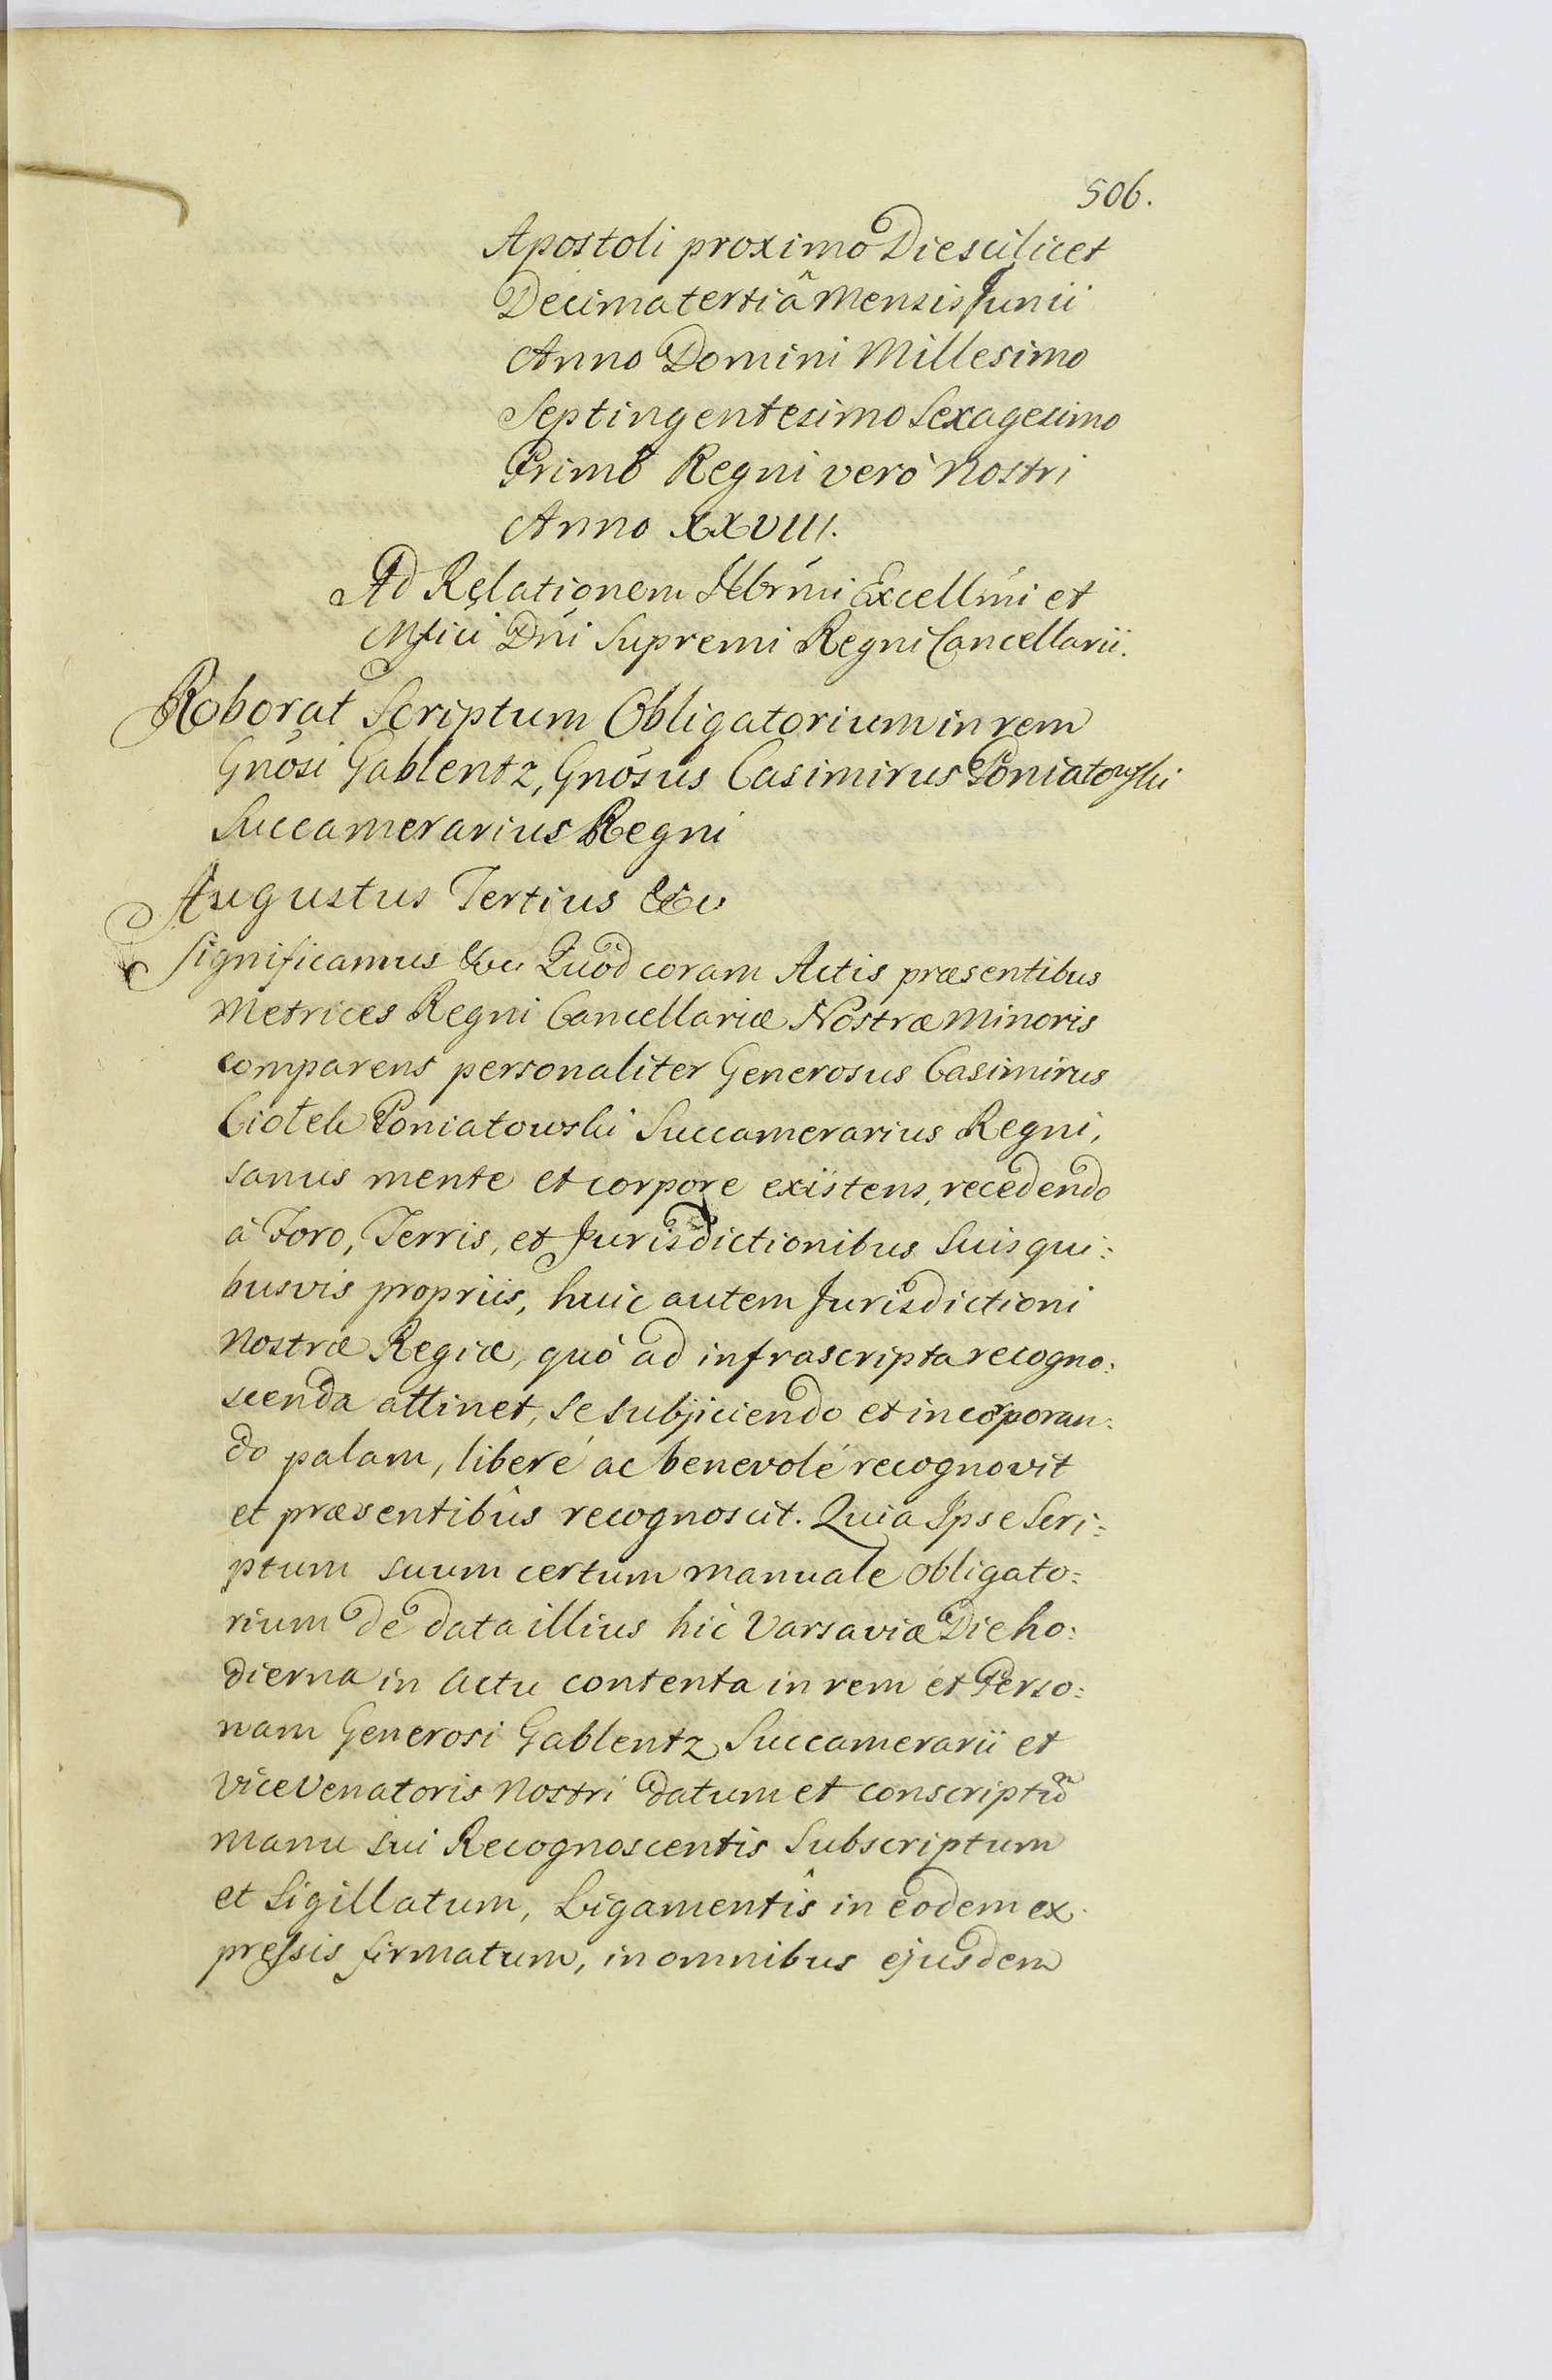 506.
Apostoli proximo Die scilicet
Decima tertiâ Mensis Junii
Anno Domini Millesimo
Septingentesimo Sexagesimo
Primo Regni verò Nostri
Anno XXVIII.
Ad Relationem Illrmi Excellmi et
Mfici Dni Supremi Regni Cancellarii.
Roborat Scriptum Obligatorium in rem
Gnosi Gablentz, Gnosus Casimirus Poniatowski
Succamerarius Regni
Augustus Tertius &c
Significamus &c Quòd coram Actis præsentibus
Metrices Regni Cancellariæ Nostræ Minoris
comparens personaliter Generosus Casimirus
Ciołek Poniatowski Succamerarius Regni,
sanus mente et corpore existens, recedendo
à Foro, Terris, et Jurisdictionibus Suis qui:
busvis propriis, huic autem Jurisdictioni
Nostræ Regiæ, quò ad infrascripta recogno:
scenda attinet, se subjiciendo et incorporan:
do palam, liberé ac benevolé recognovit
et præsentibus recognoscit. Quia Ipse Scri:
ptum suum certum manuale obligato:
rium de data illius hic Varsaviæ Die ho:
dierna in Actu contenta in rem et Perso:
nam Generosi Gablentz Succamerarii et
Vice Venatoris Nostri datum et conscriptũ
manu sui Recognoscentis Subscriptum
et Sigillatum, Ligamentîs in eodem ex
pressis firmatum, in omnibus ejusdem